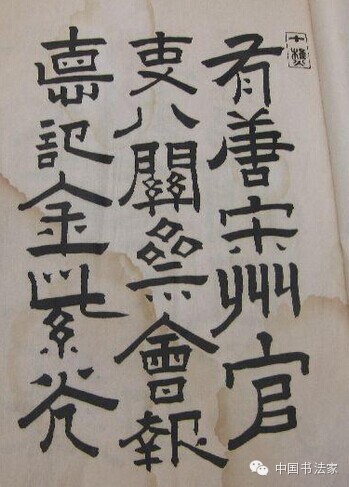 有唐宋州官
吏八關齋會報
悳記金紫光
中国书法家